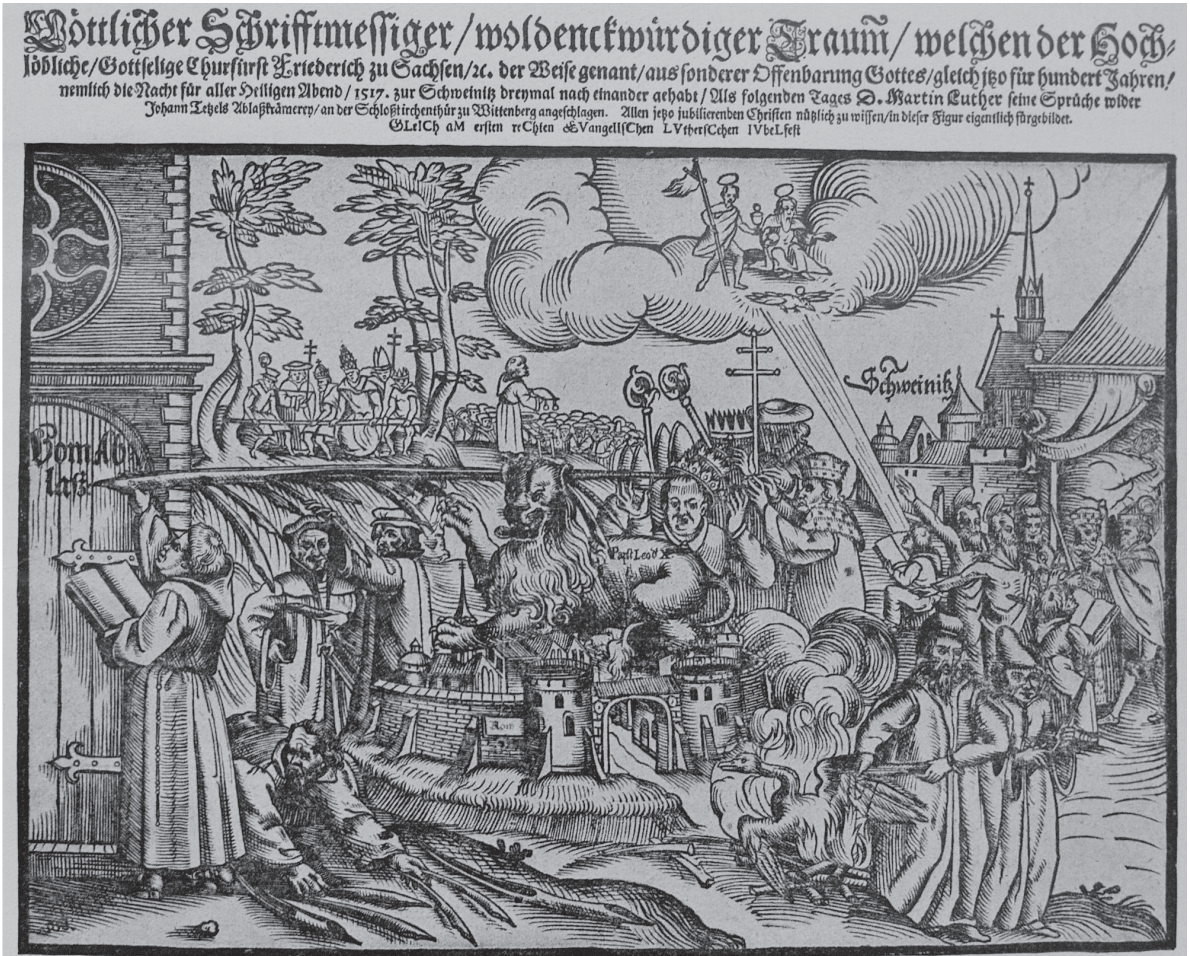 Göttlicher Schrifftmessiger/woldenckwürdiger Traum̄/welchen der Hoch=
löbliche/Gottselige Churfürst Friederich zu Sachsen/ꝛc. der Weise genant/aus sonderer Offenbarung Gottes/gleich itzo für hundert Jahren/
nemlich die Nacht für aller Heiligen Abend/1517. zur Schweinitz dreymal nach einander gehabt/Als folgenden Tages D. Martin Luther seine Sprüche wider
Johann Tetzels Ablaßkrämerey/an der Schloßkirchenthür zu Wittenberg angeschlagen. Allen jetzo jubilierenden Christen nützlich zu wissen/in dieser Figur eigentlich fürgebildet.
GLeICh aM ersten reChten EVangelIsChen LVthersChen IVbeLfest
Schweinitz
Vom Ab
laß
Papst Leo d X.
Rom